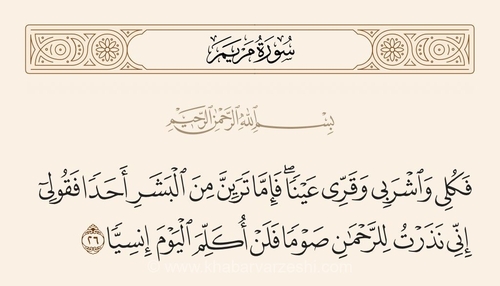 سُورَةُ مَرْيَمَ
بِسْمِ ٱللَّهِ ٱلرَّحْمَٰنِ ٱلرَّحِيمِ
فَكُلِي وَٱشْرَبِي وَقَرِّي عَيْنًاۖ فَإِمَّا تَرَيِنَّ مِنَ ٱلْبَشَرِ أَحَدًا فَقُولِيٓ
إِنِّي نَذَرْتُ لِلرَّحْمَٰنِ صَوْمًا فَلَنْ أُكَلِّمَ ٱلْيَوْمَ إِنسِيًّا ٢٦
www.khabarvarzeshi.com